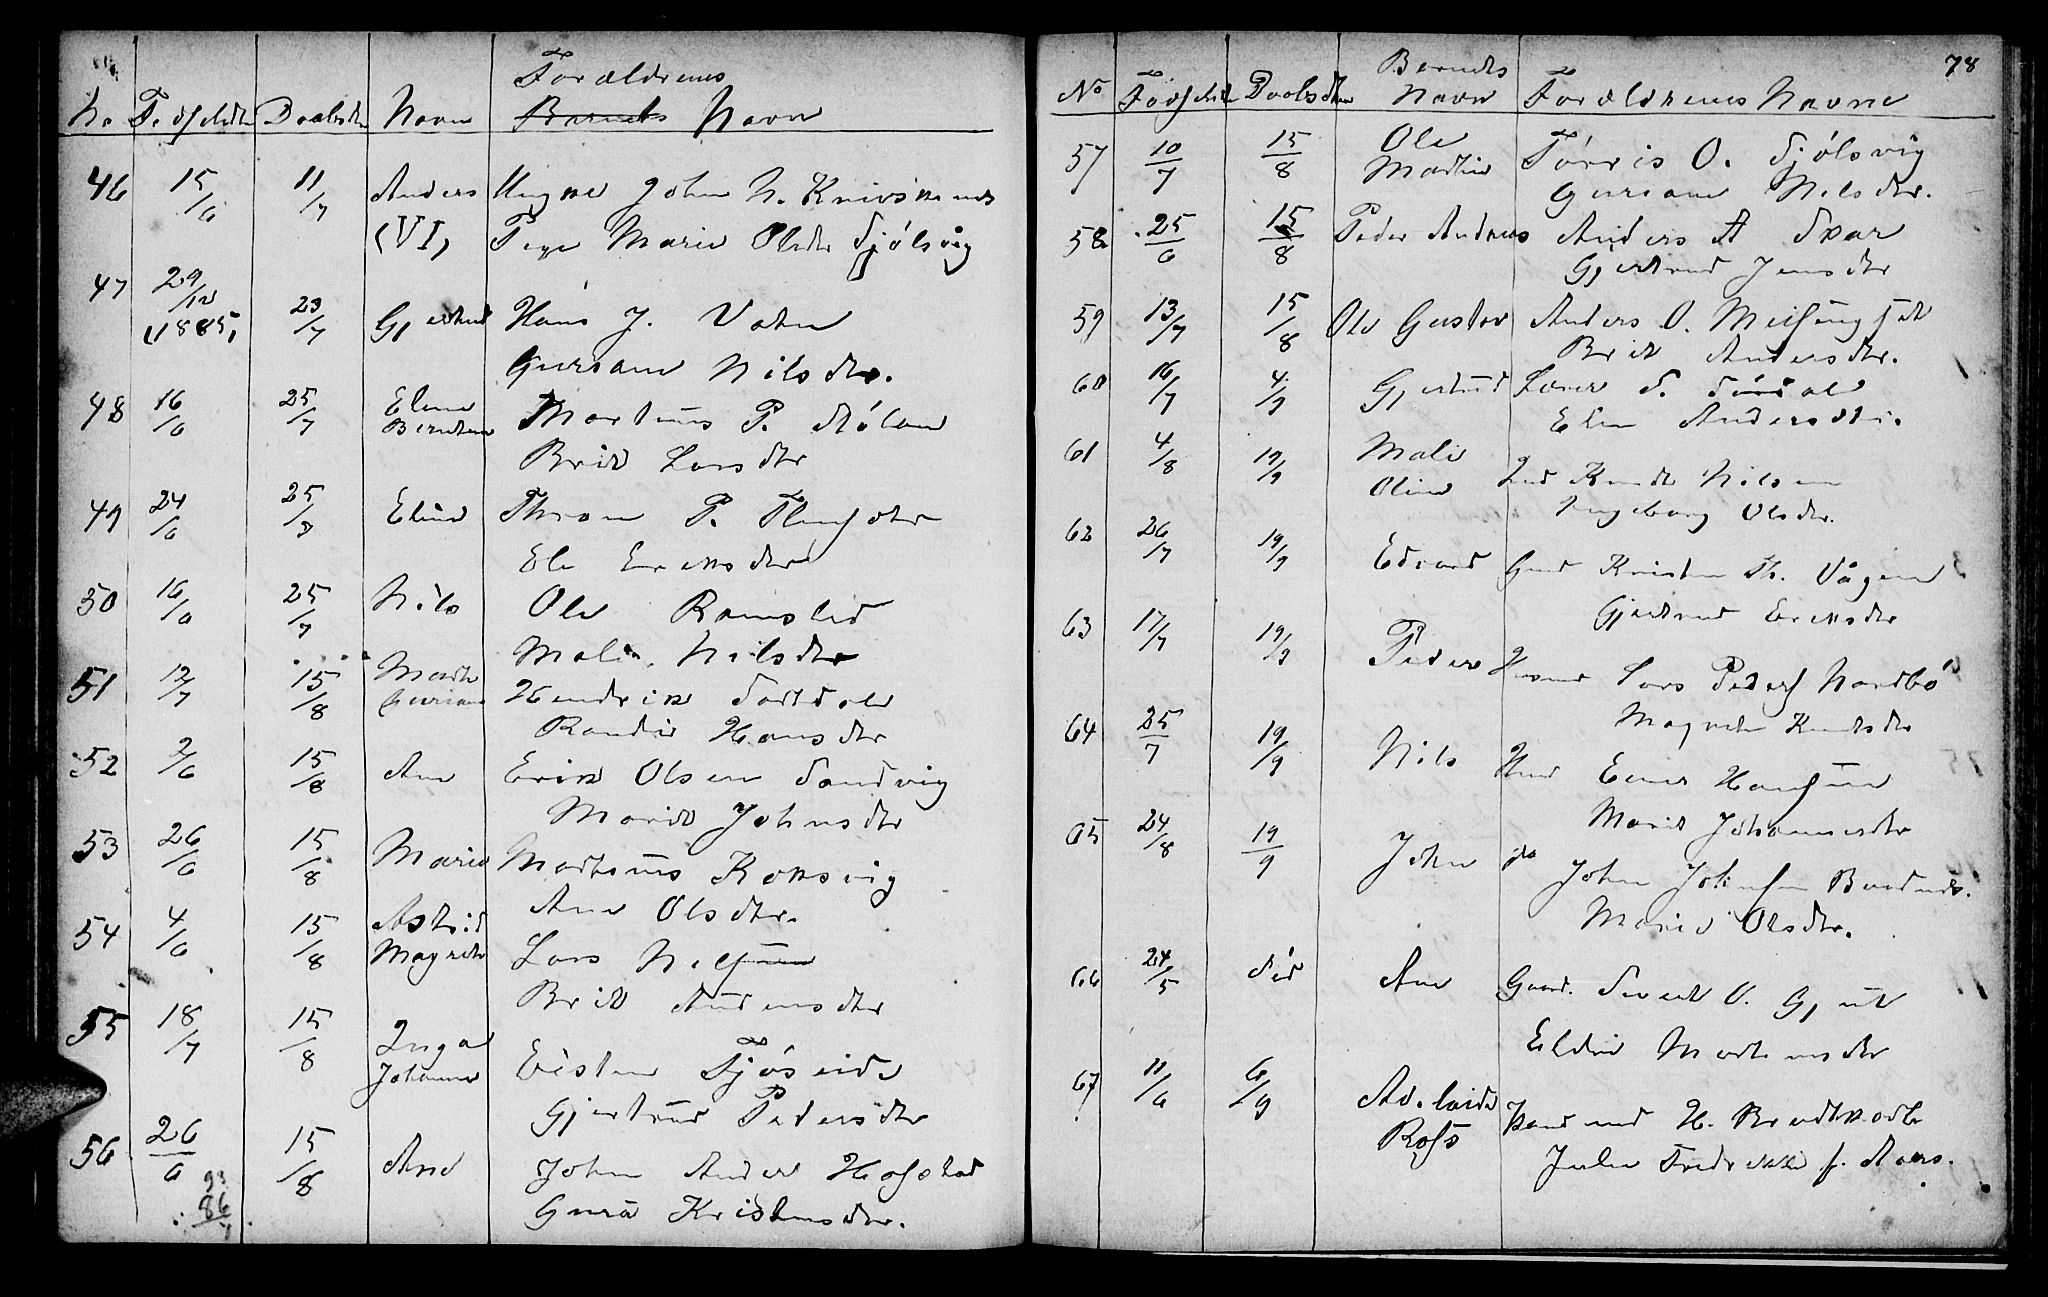 No Fødselsdt Daabsdt Navn Forældrenes Barnets Navn
46 15/6 11/7 Anders Ungkar John N. Knivsknes
(VI) Pige Marie Olsdtr Sjølsvig
47 29/12 (1885) 23/7 Gjertrud Hans J. Vatn
Guriane Nilsdtr.
48 16/6 25/7 Elene Berntine Martinus P. Mølan
Brit Larsdtr
49 24/6 25/7 Elind Thron P.
Eli Eriksdtr
50 16/6 25/7 Nils Ole Ramslid
Mali Nilsdtr
51 12/7 15/8 Marte Guriane Hendrik
Randi Hansdtr
52 2/6 15/8 Ane Erik Olsen Sandvig
Marit Johnsdtr
53 26/6 15/8 Marie Martinus Koksvig
Ane Olsdtr.
54 4/6 15/8 Astrid Magrete Lars Nilsen
Brit Andersdtr
55 18/7 15/8 Inga Johanna Eisten Fjøseide
Gjertrud Pedersdtr
56 26/6 15/8 Ane John Ander Hofstad
93
86
Gurå Kristensdtr.
78
No Fødselsdt Daabsdtr Barnets Navn Forældrenes Navne
57 10/7 15/8 Ole Martin Tørris O. Sjølsvig
Guriane Nilsdtr.
58 25/6 15/8 Peder Andreas Anders A Skar
Gjertrud Jensdtr
59 13/7 15/8 Ole Gustav Anders O. Meisingset
Brit Andersdtr.
60 16/7 4/9 Gjertrud Lærer S.
Elen Andersdtr.
61 4/8 19/9 Mali Oline Ind Knudt Nilsen
Ingeborg Olsdtr.
62 26/7 19/9 Edvard Gmd Kristen Th. Vågen
Gjertrud Eriksdtr
63 17/7 19/9 Peder Husmd Lars Peders Nordbø
Magrete Knudsdtr
64 25/7 19/9 Nils Hmd Einer Hansen
Marit Johannesdtr
65 24/8 19/9 John do John Johnsen
Marit Olsdtr.
66 24/5 død Ane Gaard. Sivert O. Gjøt
Eldri Martinsdtr
67 11/6 6/9 Adelaide Rosa H. Brodtkorb
Julie Fredrikke f. Aars.